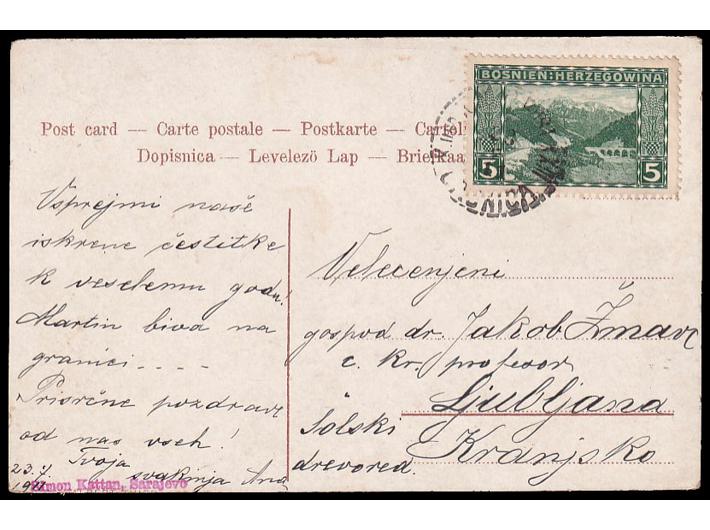 BOSNIEN:HERZEGOWINA
5 5
Post card — Carte postale — Postkarte — Cartoli
Dopisnica — Levelezö Lap — Briefkaa
Vsprejmi naše
iskrene čestitke
k veselemu godu!
Martin biva na
granici ....
Prisrčne pozdrave
od nas vseh!
Tvoja
svakinja Ana
23.7.
Simon Kattan, Sarajevo
Velecenjeni
gospod dr. Jakob Žmavc
c. kr. profesor
Ljubljana
Šolski Kranjsko
drevored.